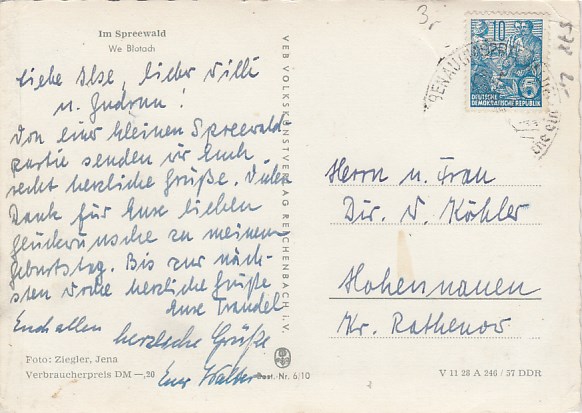 Im Spreewald
We Blotach
Liebe Ilse, lieber Willi
u. Gudrun!
Von einer kleinen Spreewald
partie senden wir Euch
recht herzliche Grüße. Vielen
Dank für Eure lieben
Glückwünsche zu meinem
Geburtstag. Bis zur näch-
sten Woche herzliche Grüße
Eure Traudel
Euch allen
herzliche Grüße
Euer Walter
Foto: Ziegler, Jena
Verbraucherpreis DM —,20
Best.-Nr. 6/10
VEB VOLKSKUNSTVERLAG REICHENBACH I. V.
10
5
DEUTSCHE
DEMOKRATISCHE REPUBLIK
Herrn u. Frau
Dir. W. Köhler
Hohennauen
Kr. Rathenow
V 11 28 A 246 / 57 DDR